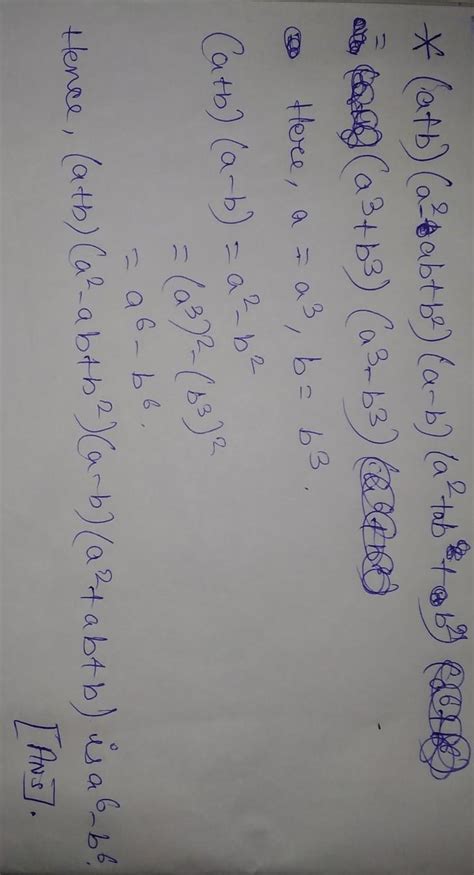 * (a+b) (a²-ab+b²) (a-b) (a²+ab+b²)
= (a³+b³) (a³-b³)
Here, a = a³, b = b³.
(a+b) (a-b) = a²-b²
= (a³)²-(b³)²
= a⁶-b⁶.
Hence, (a+b) (a²-ab+b²) (a-b) (a²+ab+b) is a⁶-b⁶.
[Ans].